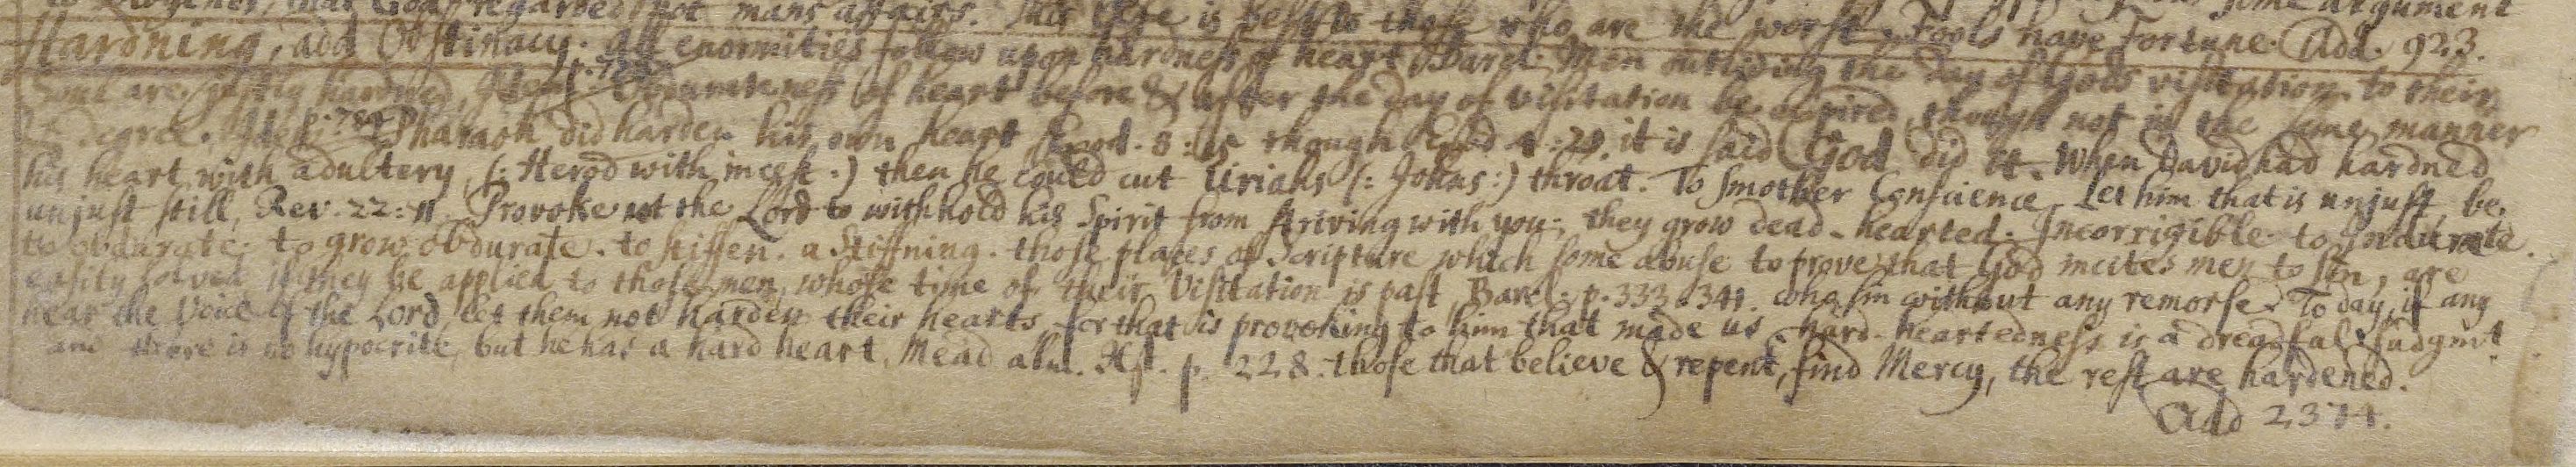 to Diogenes, that God regarded not mans affairs. This life is best to those who are the worst. Fools have Fortune. Add. 923.
Hardning, add Obstinacy. All enormities follow upon hardness of heart Barcl. Men outliving the day of Gods visitation to their
Soul are justly hardned, Item p. of heart before & after the day of visitation be expired, though not in the same manner
& degree. Item p. 784 Pharaoh did harden his own heart Exod. 8:15 though Exod 4:21. it is said God did it. When David had hardned
his heart with adultery, (: Herod with incest :) then he could cut Uriahs (: Johns :) throat. To smother Conscience. Let him that is unjust, be
unjust still, Rev. 22:11. Provoke not the Lord to withhold his Spirit from striving with you; they grow dead-hearted. Incorrigible. to Indurate.
to obdurate. to grow obdurate. to stiffen. a Stiffning. those places of Scripture which some abuse to prove that God incites men to sin, are
easily solved if they be applied to those men, whose time of their Visitation is past, Barcl. p. 333. 341. who sin without any remorse. To day, if any
hear the Voice of the Lord, let them not harden their hearts, for that is provoking to him that made us. hard-heartedness is a dreadful Judgmt
and there is no hypocrite, but he has a hard heart. Mead alm. Xst. p. 228. those that believe & repent, find Mercy, the rest are hardened.
Add 2374.